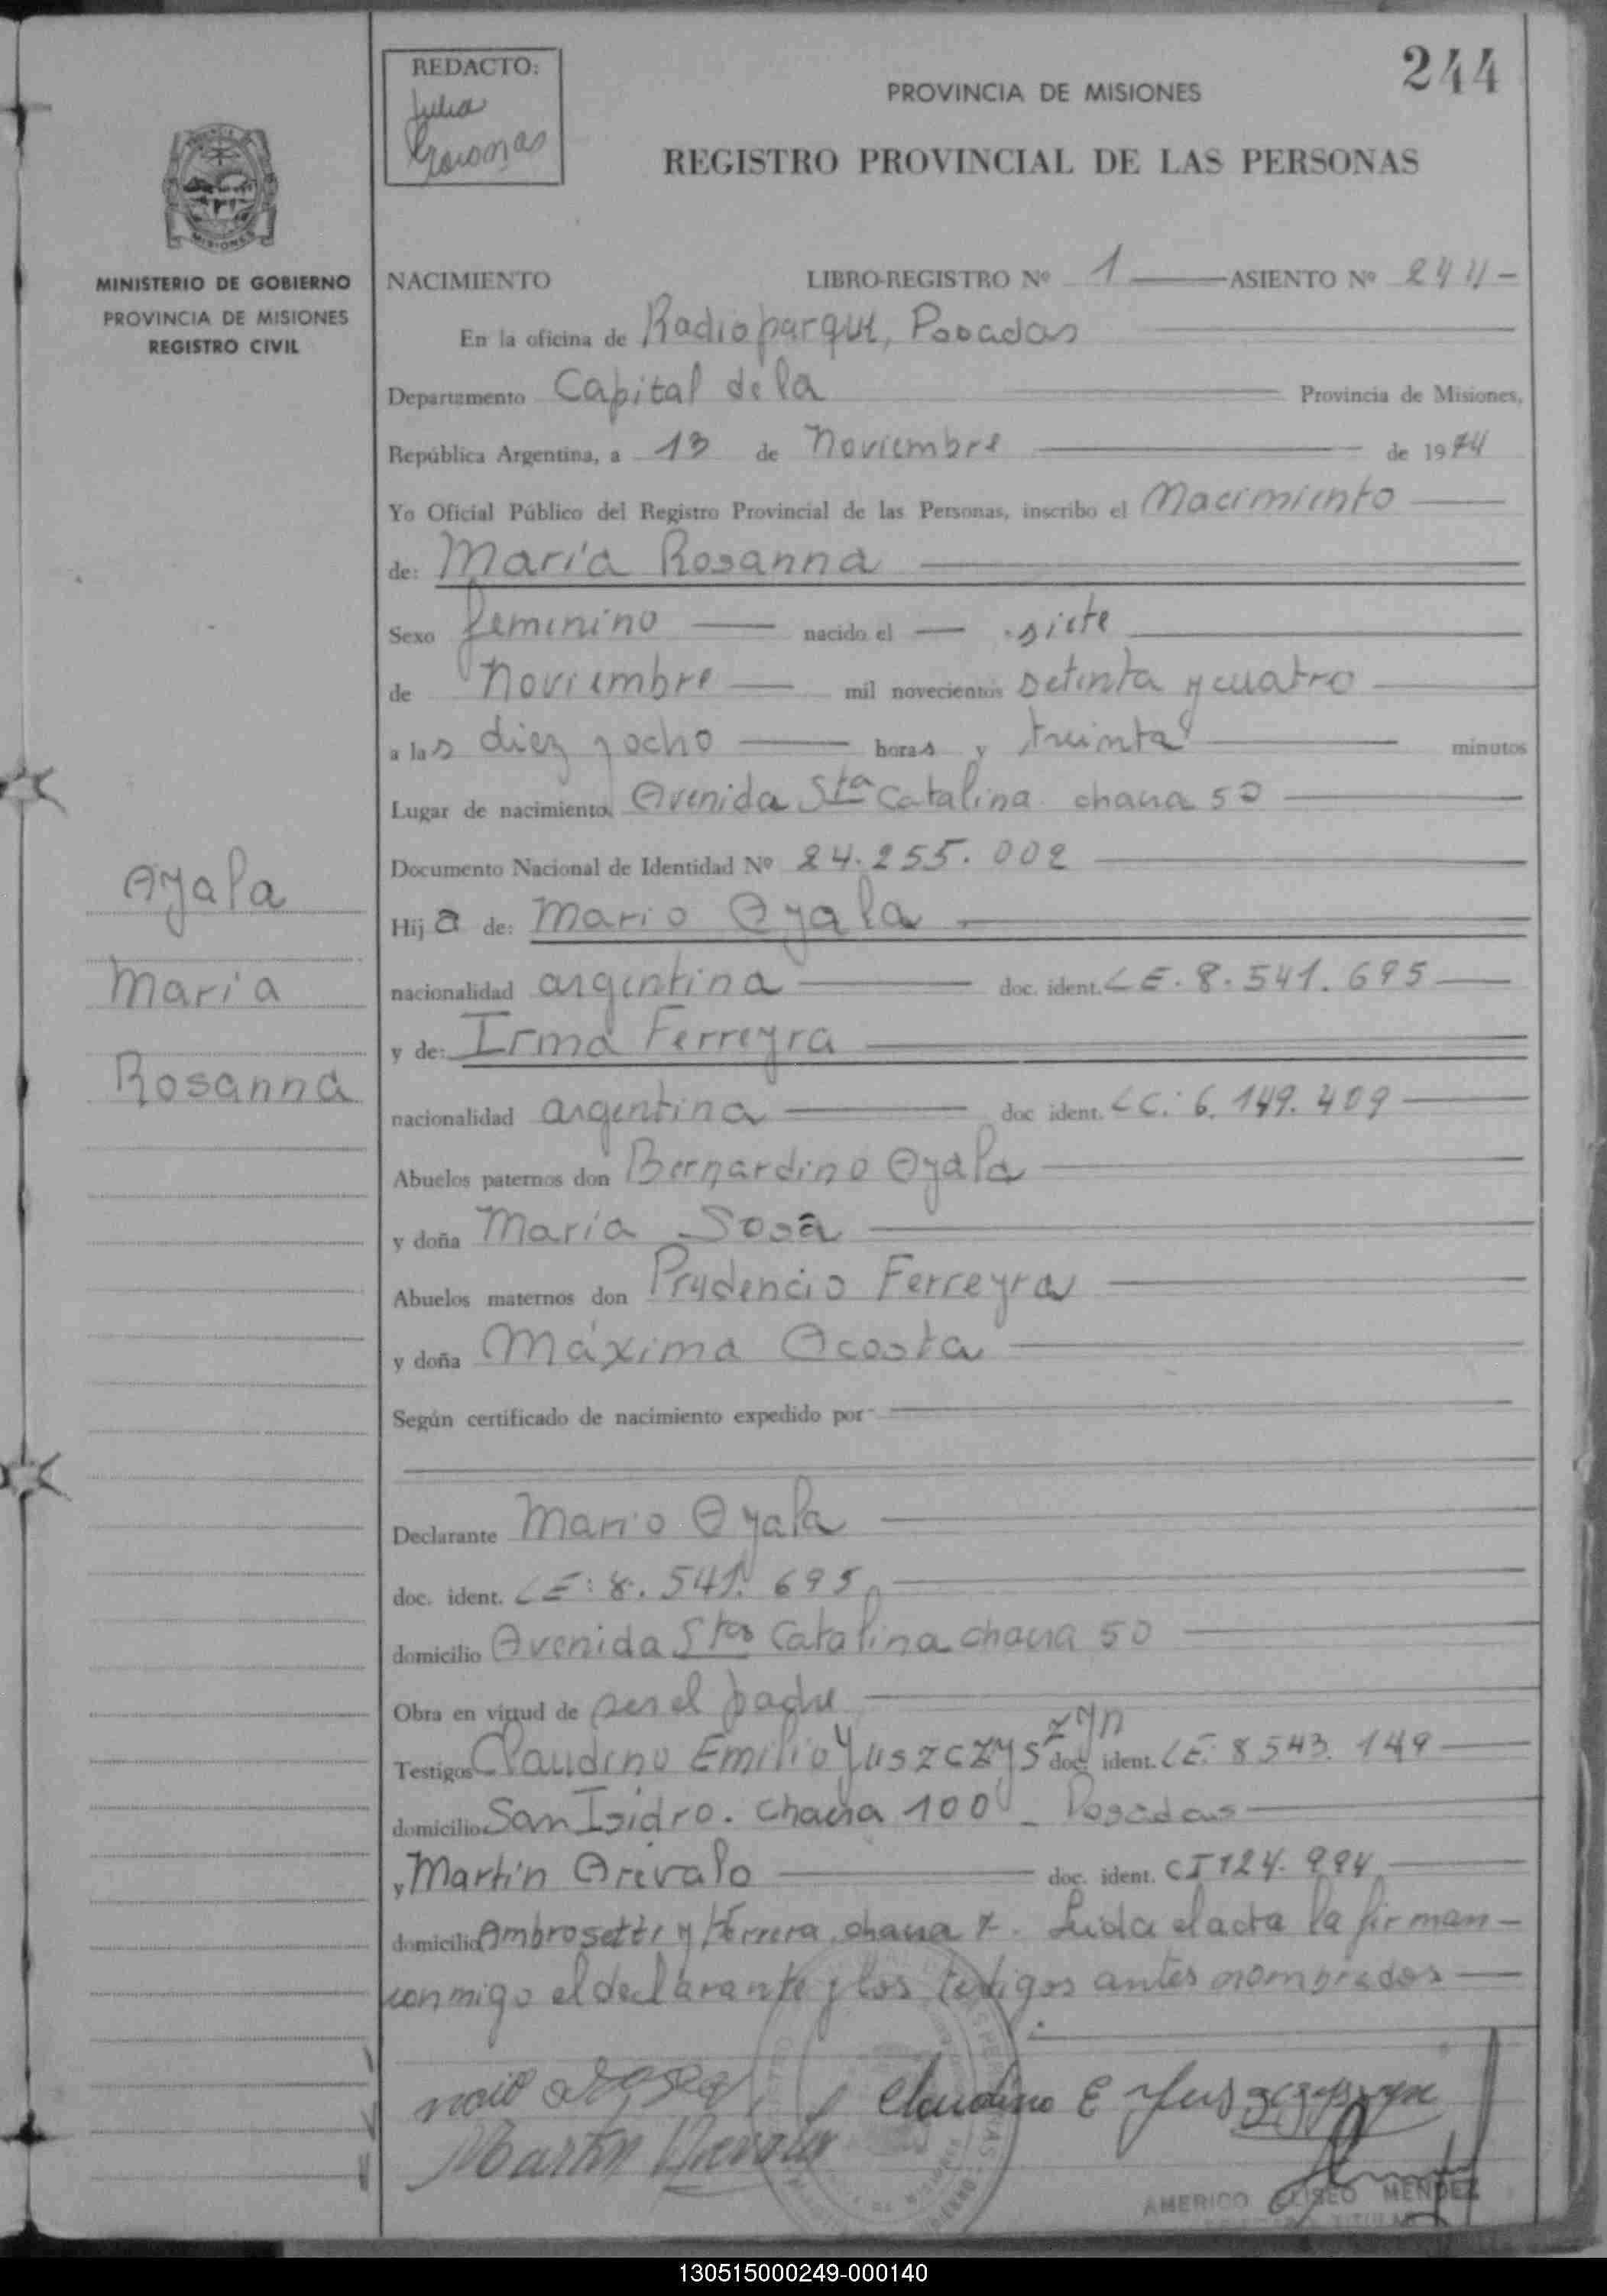 244
REDACTO:
Julia
PROVINCIA DE MISIONES
REGISTRO PROVINCIAL DE LAS PERSONAS
MISIONES
MINISTERIO DE GOBIERNO
PROVINCIA DE MISIONES
REGISTRO CIVIL
NACIMIENTO LIBRO-REGISTRO Nº 1 ASIENTO Nº 244
En la oficina de Radioparque, Posadas
Departamento Capital de la Provincia de Misiones,
República Argentina, a 13 de Noviembre de 1974
Yo Oficial Público del Registro Provincial de las Personas, inscribo el Nacimiento
de: María Rosanna
Sexo femenino nacido el siete
de Noviembre mil novecientos setenta y cuatro
a las diez y ocho horas y treinta minutos
Lugar de nacimiento Avenida Sta Catalina chacra 50
Documento Nacional de Identidad Nº 24.255.002
Hija de: Mario Ayala
nacionalidad argentina doc. ident. LE. 8.541.695
y de: Irma Ferreyra
nacionalidad argentina doc ident. LC.: 6.149.409
Abuelos paternos don Bernardino Ayala
y doña María Sosa
Abuelos maternos don Prudencio Ferreyra
y doña Máxima Acosta
Según certificado de nacimiento expedido por
Declarante Mario Ayala
doc. ident. LE: 8.541.695
domicilio Avenida Sta Catalina chacra 50
Obra en virtud de ser el padre
Testigos Claudino Emilio Yuszczyszyn doc. ident. LE. 8543.149
domicilio San Isidro. chacra 100 - Posadas
y Martín Arévalo doc. ident. CI 124.994
domicilio Ambrosetti y Herrera chacra 7. Leida el acta la firman
conmigo el declarante y los testigos antes nombrados
Claudino E Yuszczyszyn
Martin Arevalo
AMERICO ELISEO MENDEZ
Ayala
María
Rosanna
130515000249-000140